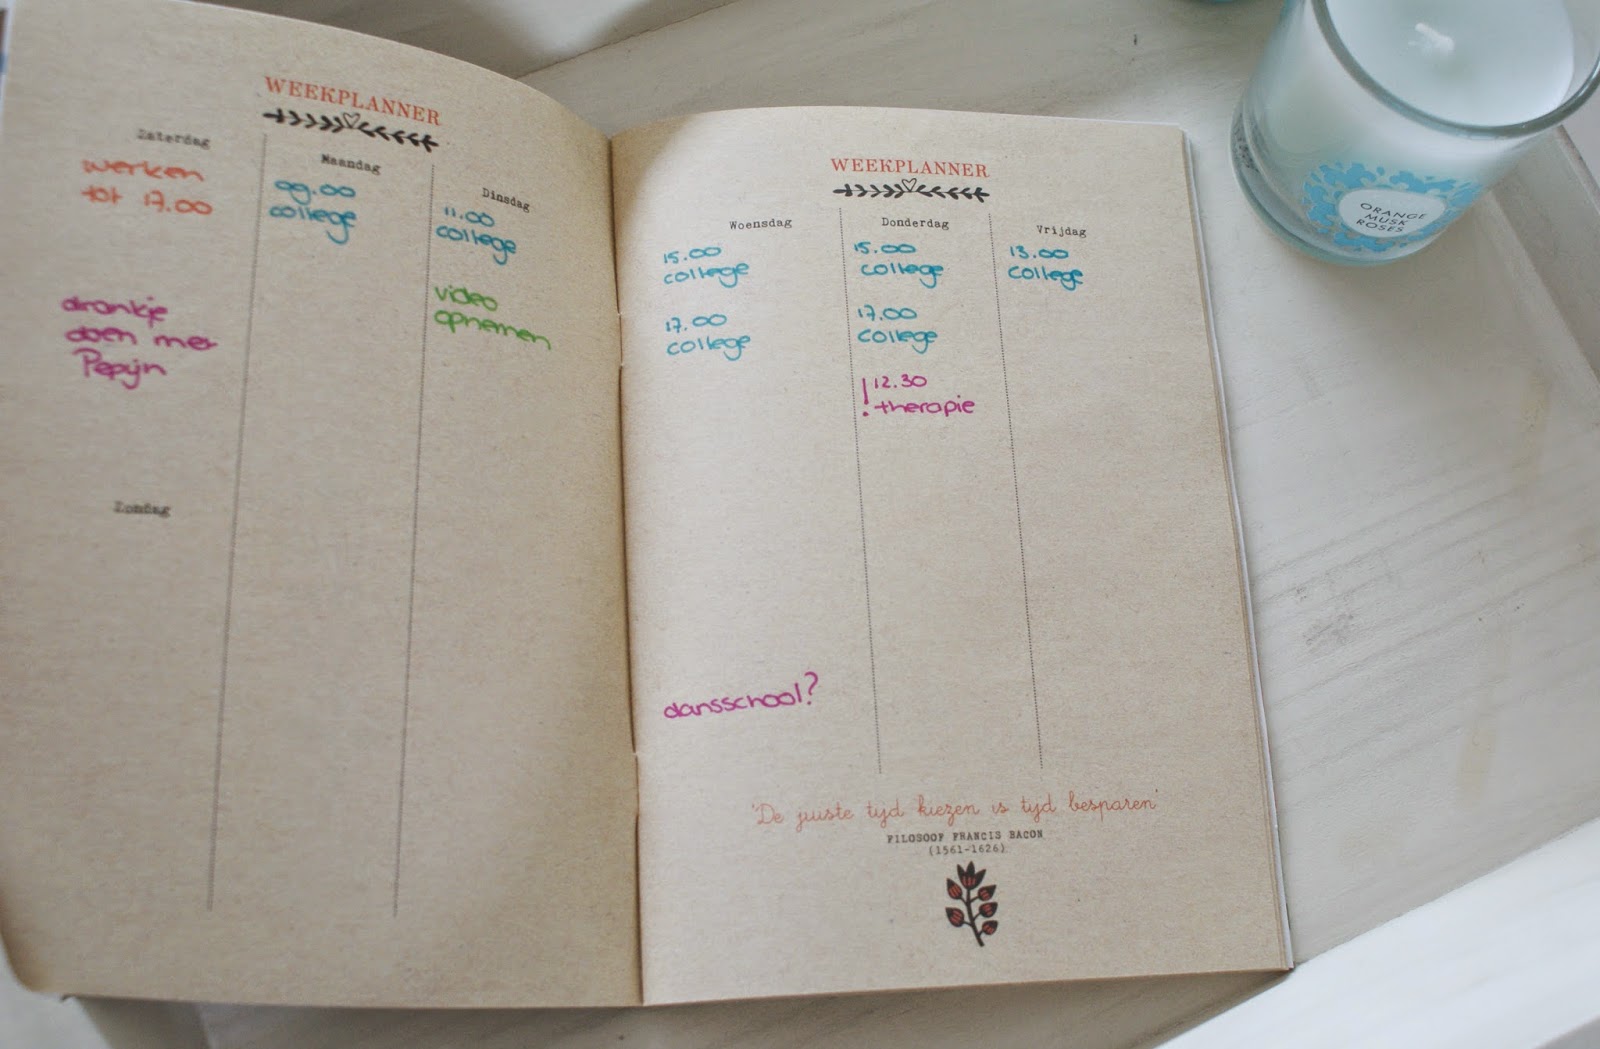 WEEKPLANNER
Zaterdag
werken
tot 17.00
drankje
doen met
Pepijn
Zondag
Maandag
09.00
college
Dinsdag
11.00
college
video
opnemen
WEEKPLANNER
Woensdag
15.00
college
17.00
college
dansschool?
Donderdag
15.00
college
17.00
college
! 12.30
therapie
Vrijdag
13.00
college
'De juiste tijd kiezen is tijd besparen'
FILOSOOF FRANCIS BACON
(1561-1626)
ORANGE
MUSK
ROSES